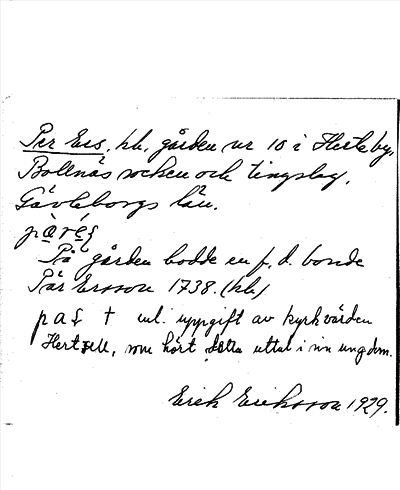 Per Ers, kb. gården nr 10 i Herteby,
Bollnäs socken och tingslag,
Gävleborgs län.
pàréʂ
På gården bodde en f. d. bonde
Pär Ersson 1738. (kb.)
paʂ † enl. uppgift av kyrkvärden
Hertzell, som hört detta uttal i sin ungdom.
Erik Eriksson 1929.